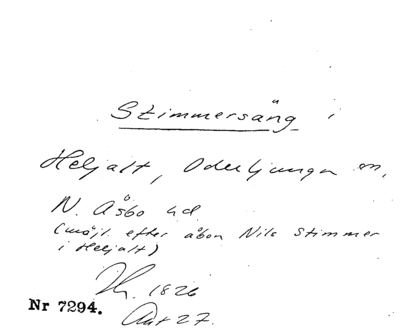 Stimmersäng i
Heljalt, Oderljunga sn,
N. Åsbo hd
(möjl. efter åbon Nils Stimmer
i Heljalt)
1826
Nr 7294.
27.